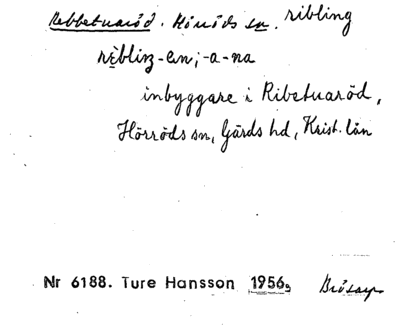 Rebbetuaröd. Hörröds sn. ribling
rèbliŋ -en; -a -na
inbyggare i Ribetuaröd,
Hörröds sn, Gärds hd, Krist. län
Nr 6188. Ture Hansson 1956.